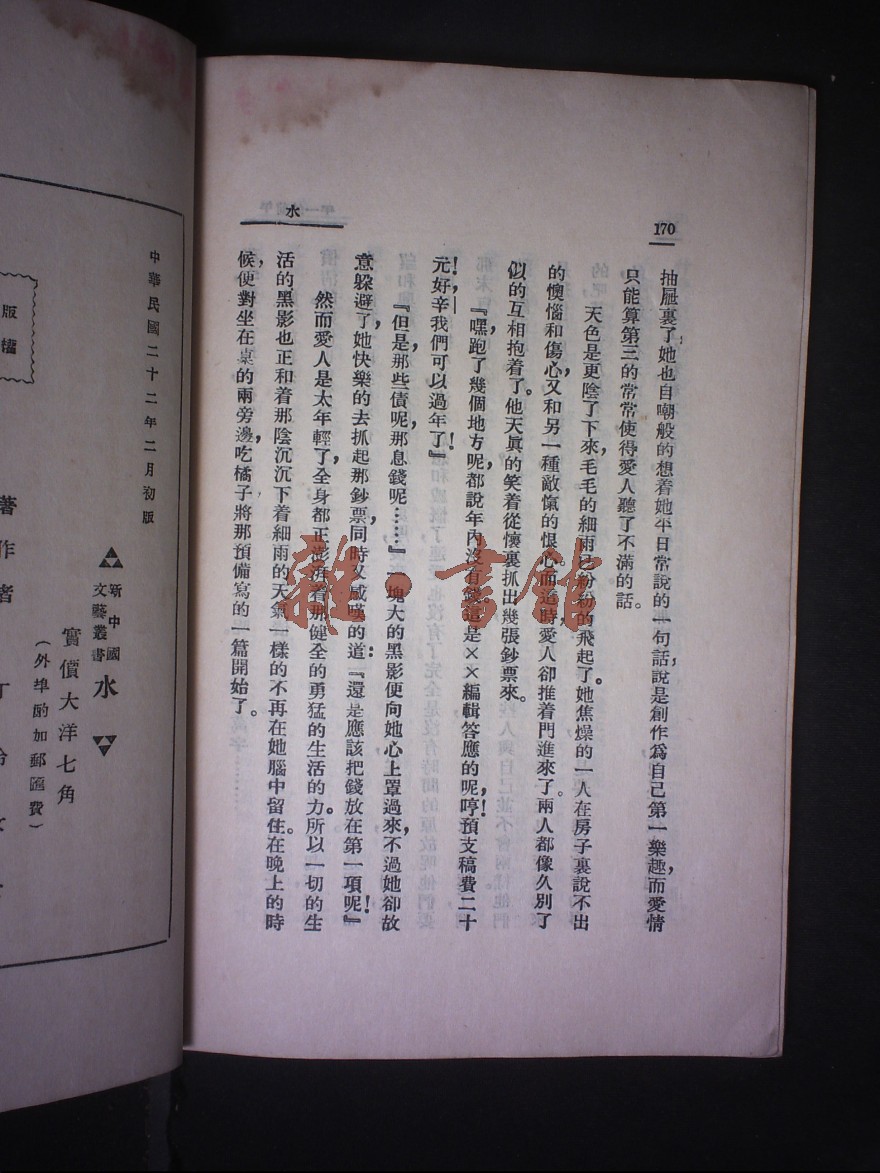 170
水
抽屜裏了，她也自嘲般的想着她平日常說的一句話，說是創作爲自己第一樂趣，而愛情
只能算第三的常常使得愛人聽了不滿的話。
天色是更陰了下來，毛毛的細雨已紛紛的飛起了。她焦燥的一人在房子裏說不出
的懊惱和傷心，又和另一種敵愾的恨心。而這時，愛人卻推着門進來了。兩人都像久別了
似的互相抱着了。他天眞的笑着從懷裏抓出幾張鈔票來。
『嘿，跑了幾個地方呢，都說年內沒有錢，這是××編輯答應的呢，哼！預支稿費二十
元！，好辛，我們可以過年了！』
『但是，那些債呢，那息錢呢……』一塊大的黑影便向她心上罩過來，不過她卻故
意躱避了，她快樂的去抓起那鈔票，同時又感嘆的道：『還是應該把錢放在第一項呢！』
然而愛人是太年輕了，全身都正澎湃着那健全的勇猛的生活的力。所以一切的生
活的黑影也正和着那陰沉沉下着細雨的天氣一樣的不再在她腦中留住。在晚上的時
候，便對坐在桌的兩旁邊，吃橘子，將那預備寫的一篇開始了。
中華民國二十二年二月初版
新中國
文藝叢書
水
實價大洋七角
(外埠酌加郵匯費)
著作者
丁
版權
雜·書館